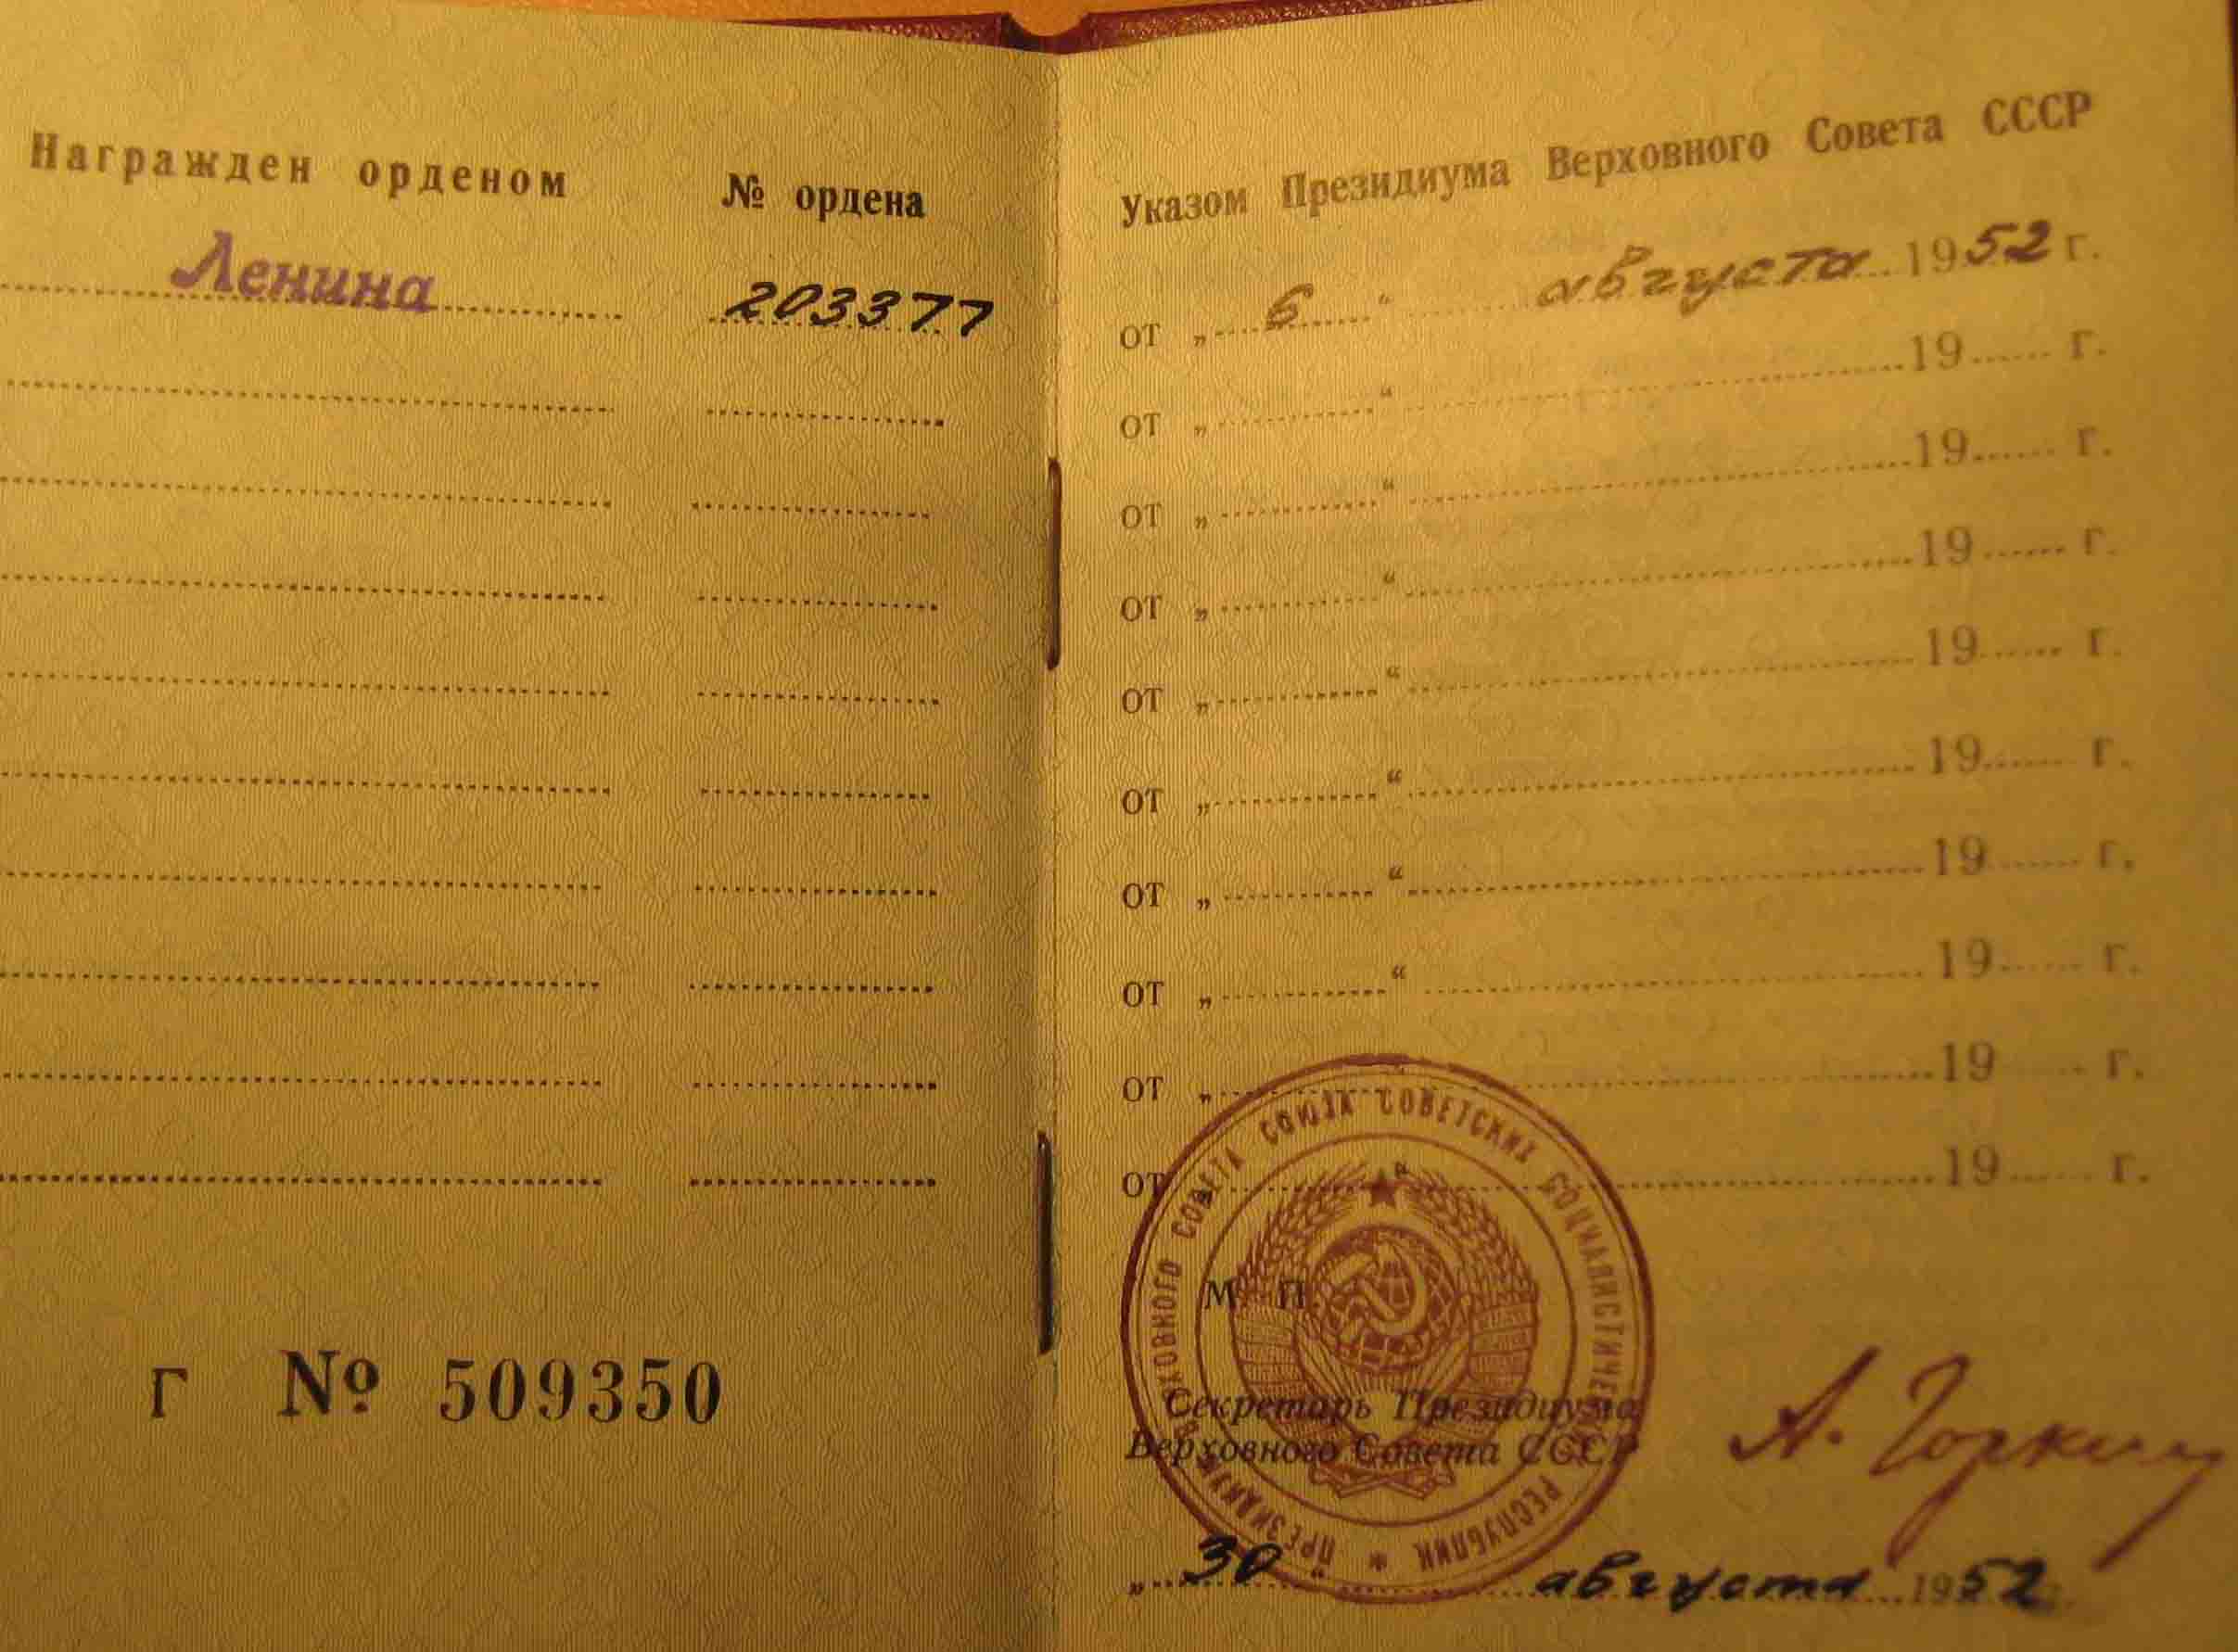 Награжден орденом № ордена
Ленина 203377
Г № 509350
Указом Президиума Верховного Совета СССР
от „ 6 “ августа 1952 г.
от „ “ 19 г.
от „ “ 19 г.
от „ “ 19 г.
от „ “ 19 г.
от „ “ 19 г.
от „ “ 19 г.
от „ “ 19 г.
от „ 19 г.
от 19 г.
ПРЕЗИДИУМ ВЕРХОВНОГО СОВЕТА СОЮЗА СОВЕТСКИХ СОЦИАЛИСТИЧЕСКИХ РЕСПУБЛИК *
М. П.
Секретарь Президиума
Верховного Совета СССР А. Горкин
„ 30 “ августа 1952 г.